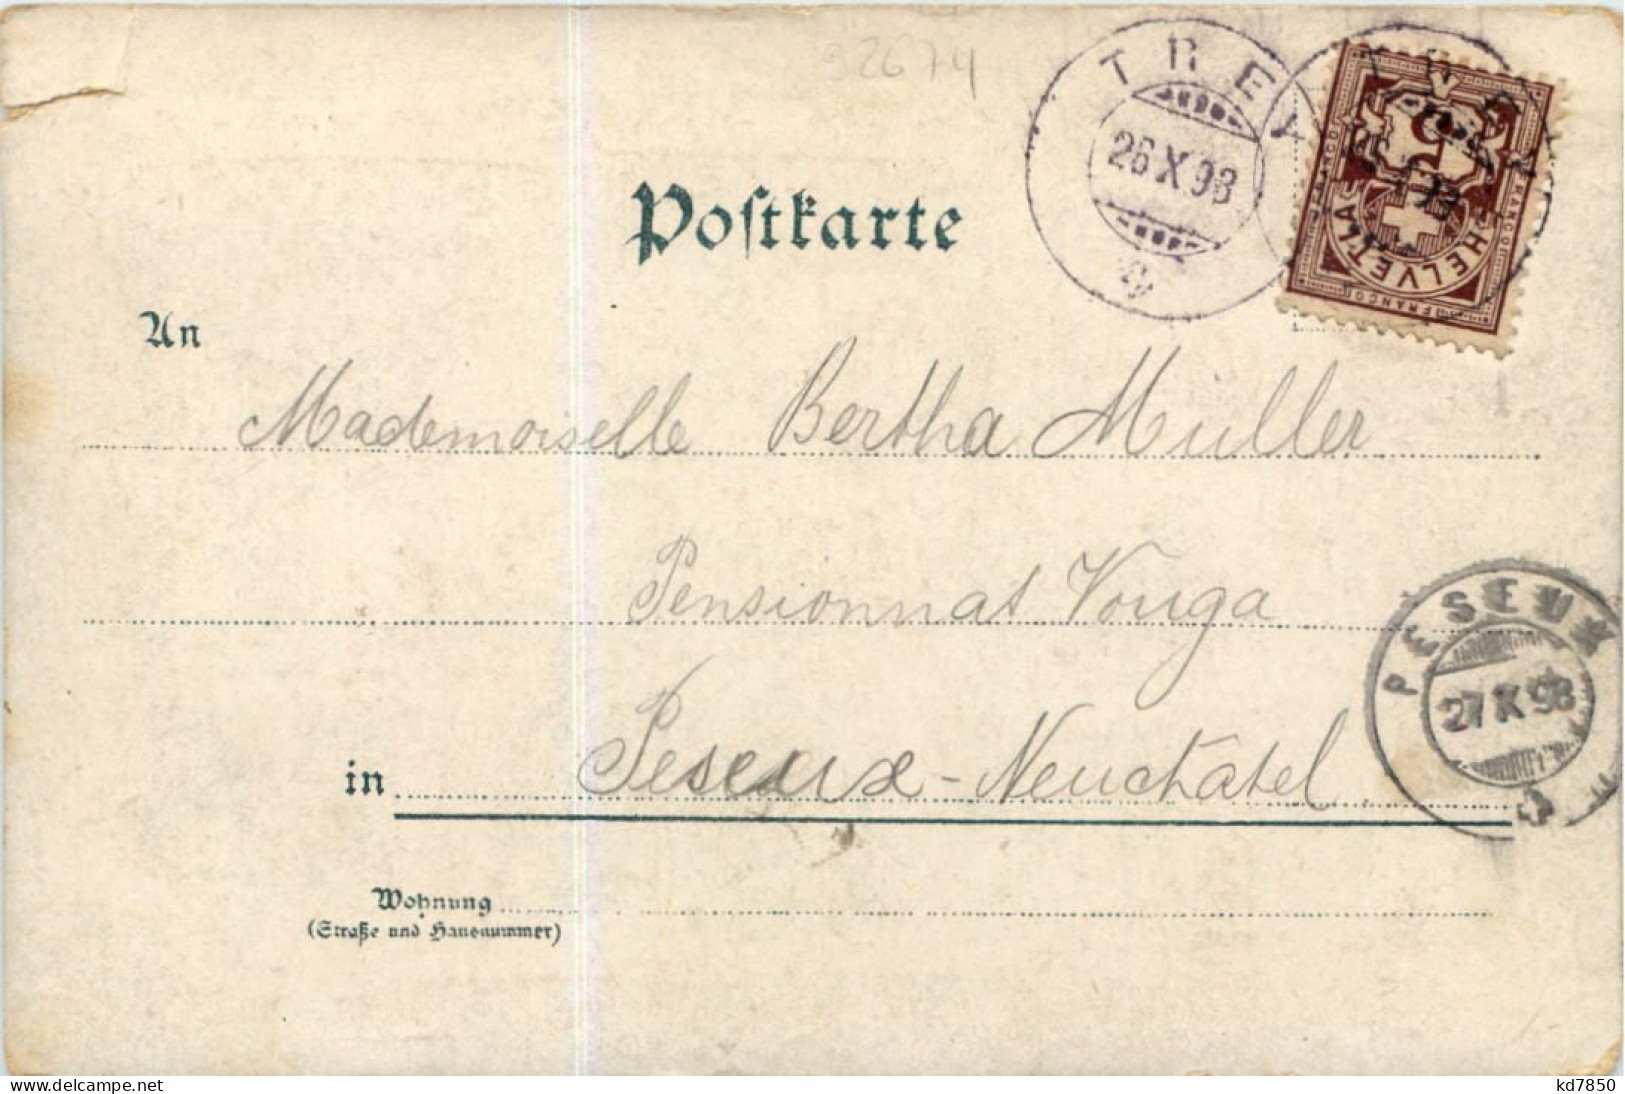 92674
TREY
26 X 98
FRANCO
5
HELVETIA
FRANCO
FRANCO
Postkarte
An
Mademoiselle Bertha Müller
Pensionnat Vouga
PESEUX
27 X 98
in Peseux - Neuchâtel
Wohnung
(Straße und Hausnummer)
kd7850